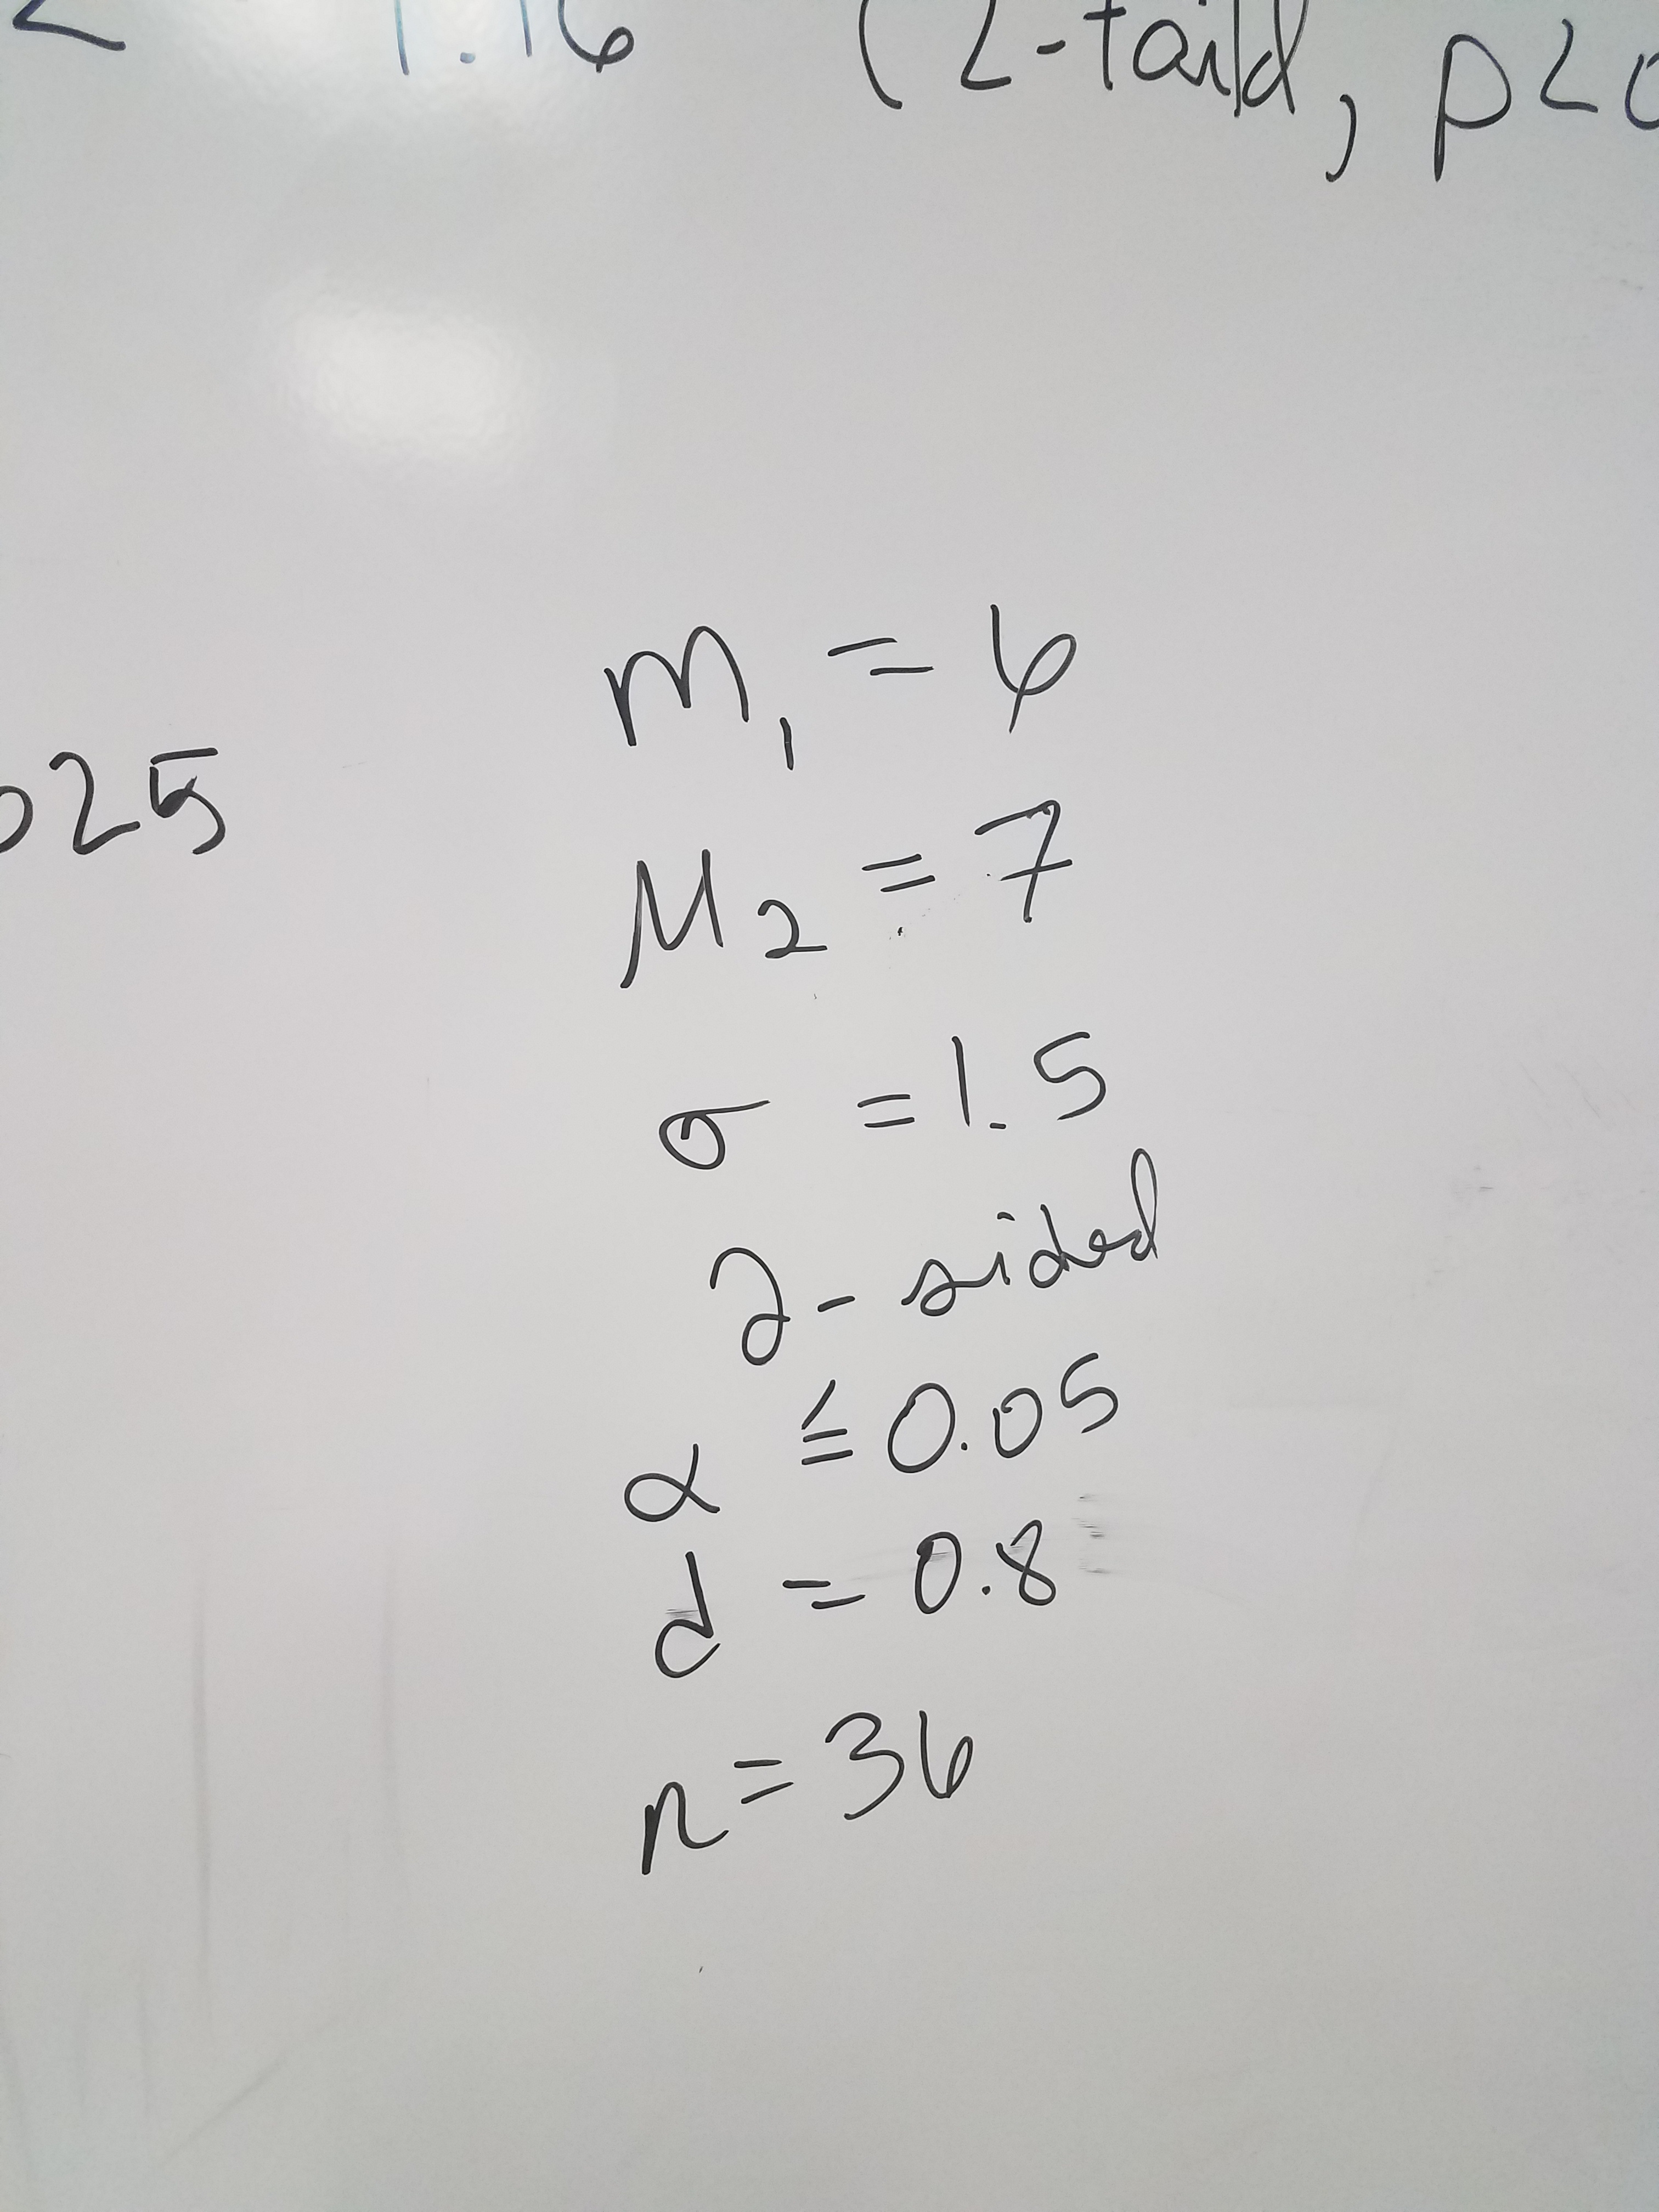 1.16 (2-taild, p<0
m₁ = 6
025
μ₂ = 7
σ = 1.5
2-sided
α ≦ 0.05
d = 0.8
n = 36